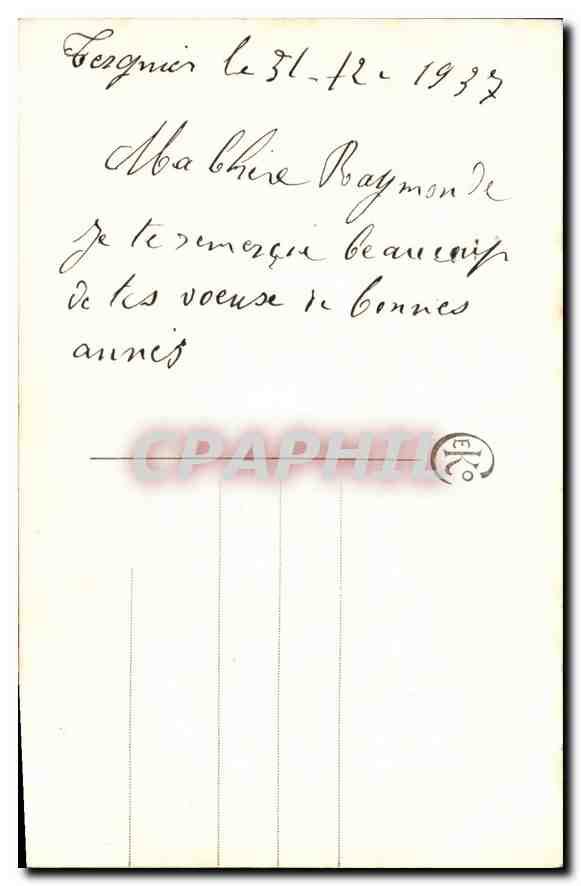 Tergnier le 31-12-1937
Ma Chère Raymonde
je te remerçie beaucoup
de tes voeuse de bonnes
annés
CPAPHIL
EKC